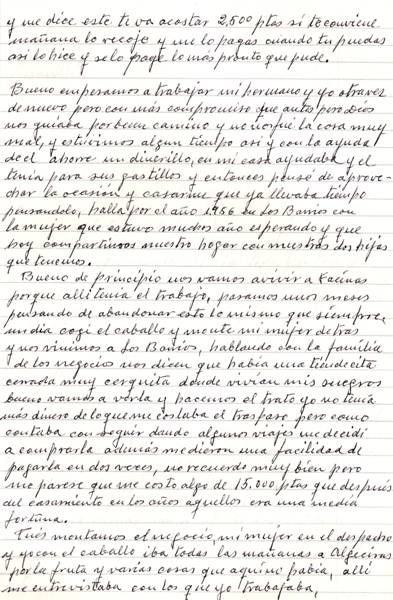 y me dice este te va acostar 2,500 ptas si te conviene
mañana lo recojo y me lo pagas cuando tu puedas
asi lo hice y se lo pagé lo más pronto que pude.
Bueno empesamos a trabajar mi hermano y yo otravez
de nuevo pero con más compromiso que antes pero Dios
nos guiaba por buen camino y no nos fué la cosa muy
mal, y estuvimos algun tiempo asi y con la ayuda
de el ahorre un dinerillo, en mi casa ayudaba y el
tenia para sus gastillos y entonces pensé de aprove-
char la ocasión y casarme que ya llevaba tiempo
pensandolo, halla por el año 1.956 en Los Barrios con
la mujer que estuvo muchos año esperando y que
hoy compartimos nuestro hogar con nuestras dos hijas
que tenemos.
Bueno de principio nos vamos avivir a Facinas
porque alli tenia el trabajo, pasamos unos meses
pensando de abandonar esto lo mismo que siempre,
un dia cogi el caballo y monte mi mujer detras
y nos vinimos a Los Barrios, hablando con la familia
de los negocios nos dicen que habia una tiendecita
cerrada muy cerquita donde vivian mis suegros
bueno vamos a verla y hacemos el trato yo no tenia
más dinero de lo que me costaba el traspaso pero como
contaba con seguir dando algunos viajes me decidi
a comprarla además me dieron una facilidad de
pagarla en dos veces, no recuerdo muy bien pero
me parese que me costo algo de 15.000 ptas que después
del casamiento en los años aquellos era una media
fortuna.
Pués montamos el negocio, mi mujer en el despacho
y yo con el caballo iba todas las mañanas a Algeciras
por la fruta y varias cosas que aqui no habia, alli
me entrevistaba con los que yo trabajaba,